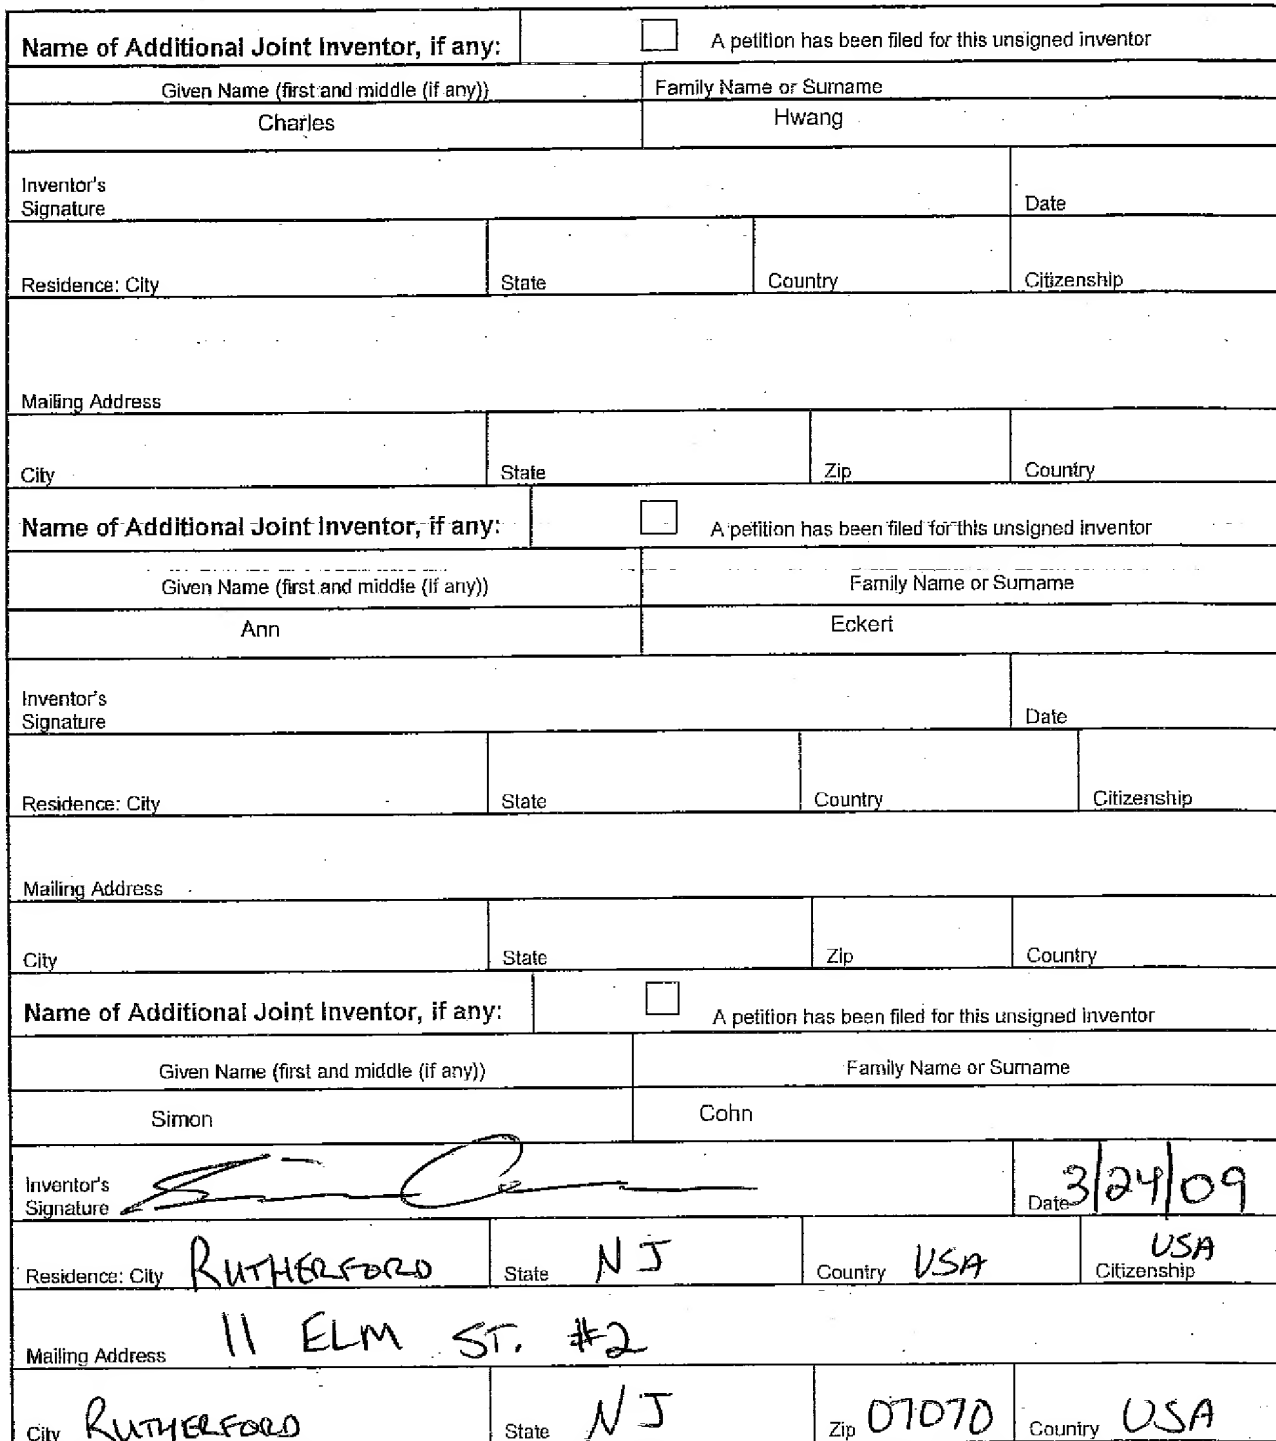 Name of Additional Joint Inventor, if any: A petition has been filed for this unsigned inventor
Given Name (first and middle (if any)) Family Name or Surname
Charles Hwang
Inventor's
Signature Date
Residence: City State Country Citizenship
Mailing Address
City State Zip Country
Name of Additional Joint Inventor, if any: A petition has been filed for this unsigned inventor
Given Name (first and middle (if any)) Family Name or Surname
Ann Eckert
Inventor's
Signature Date
Residence: City State Country Citizenship
Mailing Address
City State Zip Country
Name of Additional Joint Inventor, if any: A petition has been filed for this unsigned inventor
Given Name (first and middle (if any)) Family Name or Surname
Simon Cohn
Inventor's
Signature Date 3/24/09
Residence: City RUTHERFORD State NJ Country USA Citizenship USA
Mailing Address 11 ELM ST. #2
City RUTHERFORD State NJ Zip 07070 Country USA